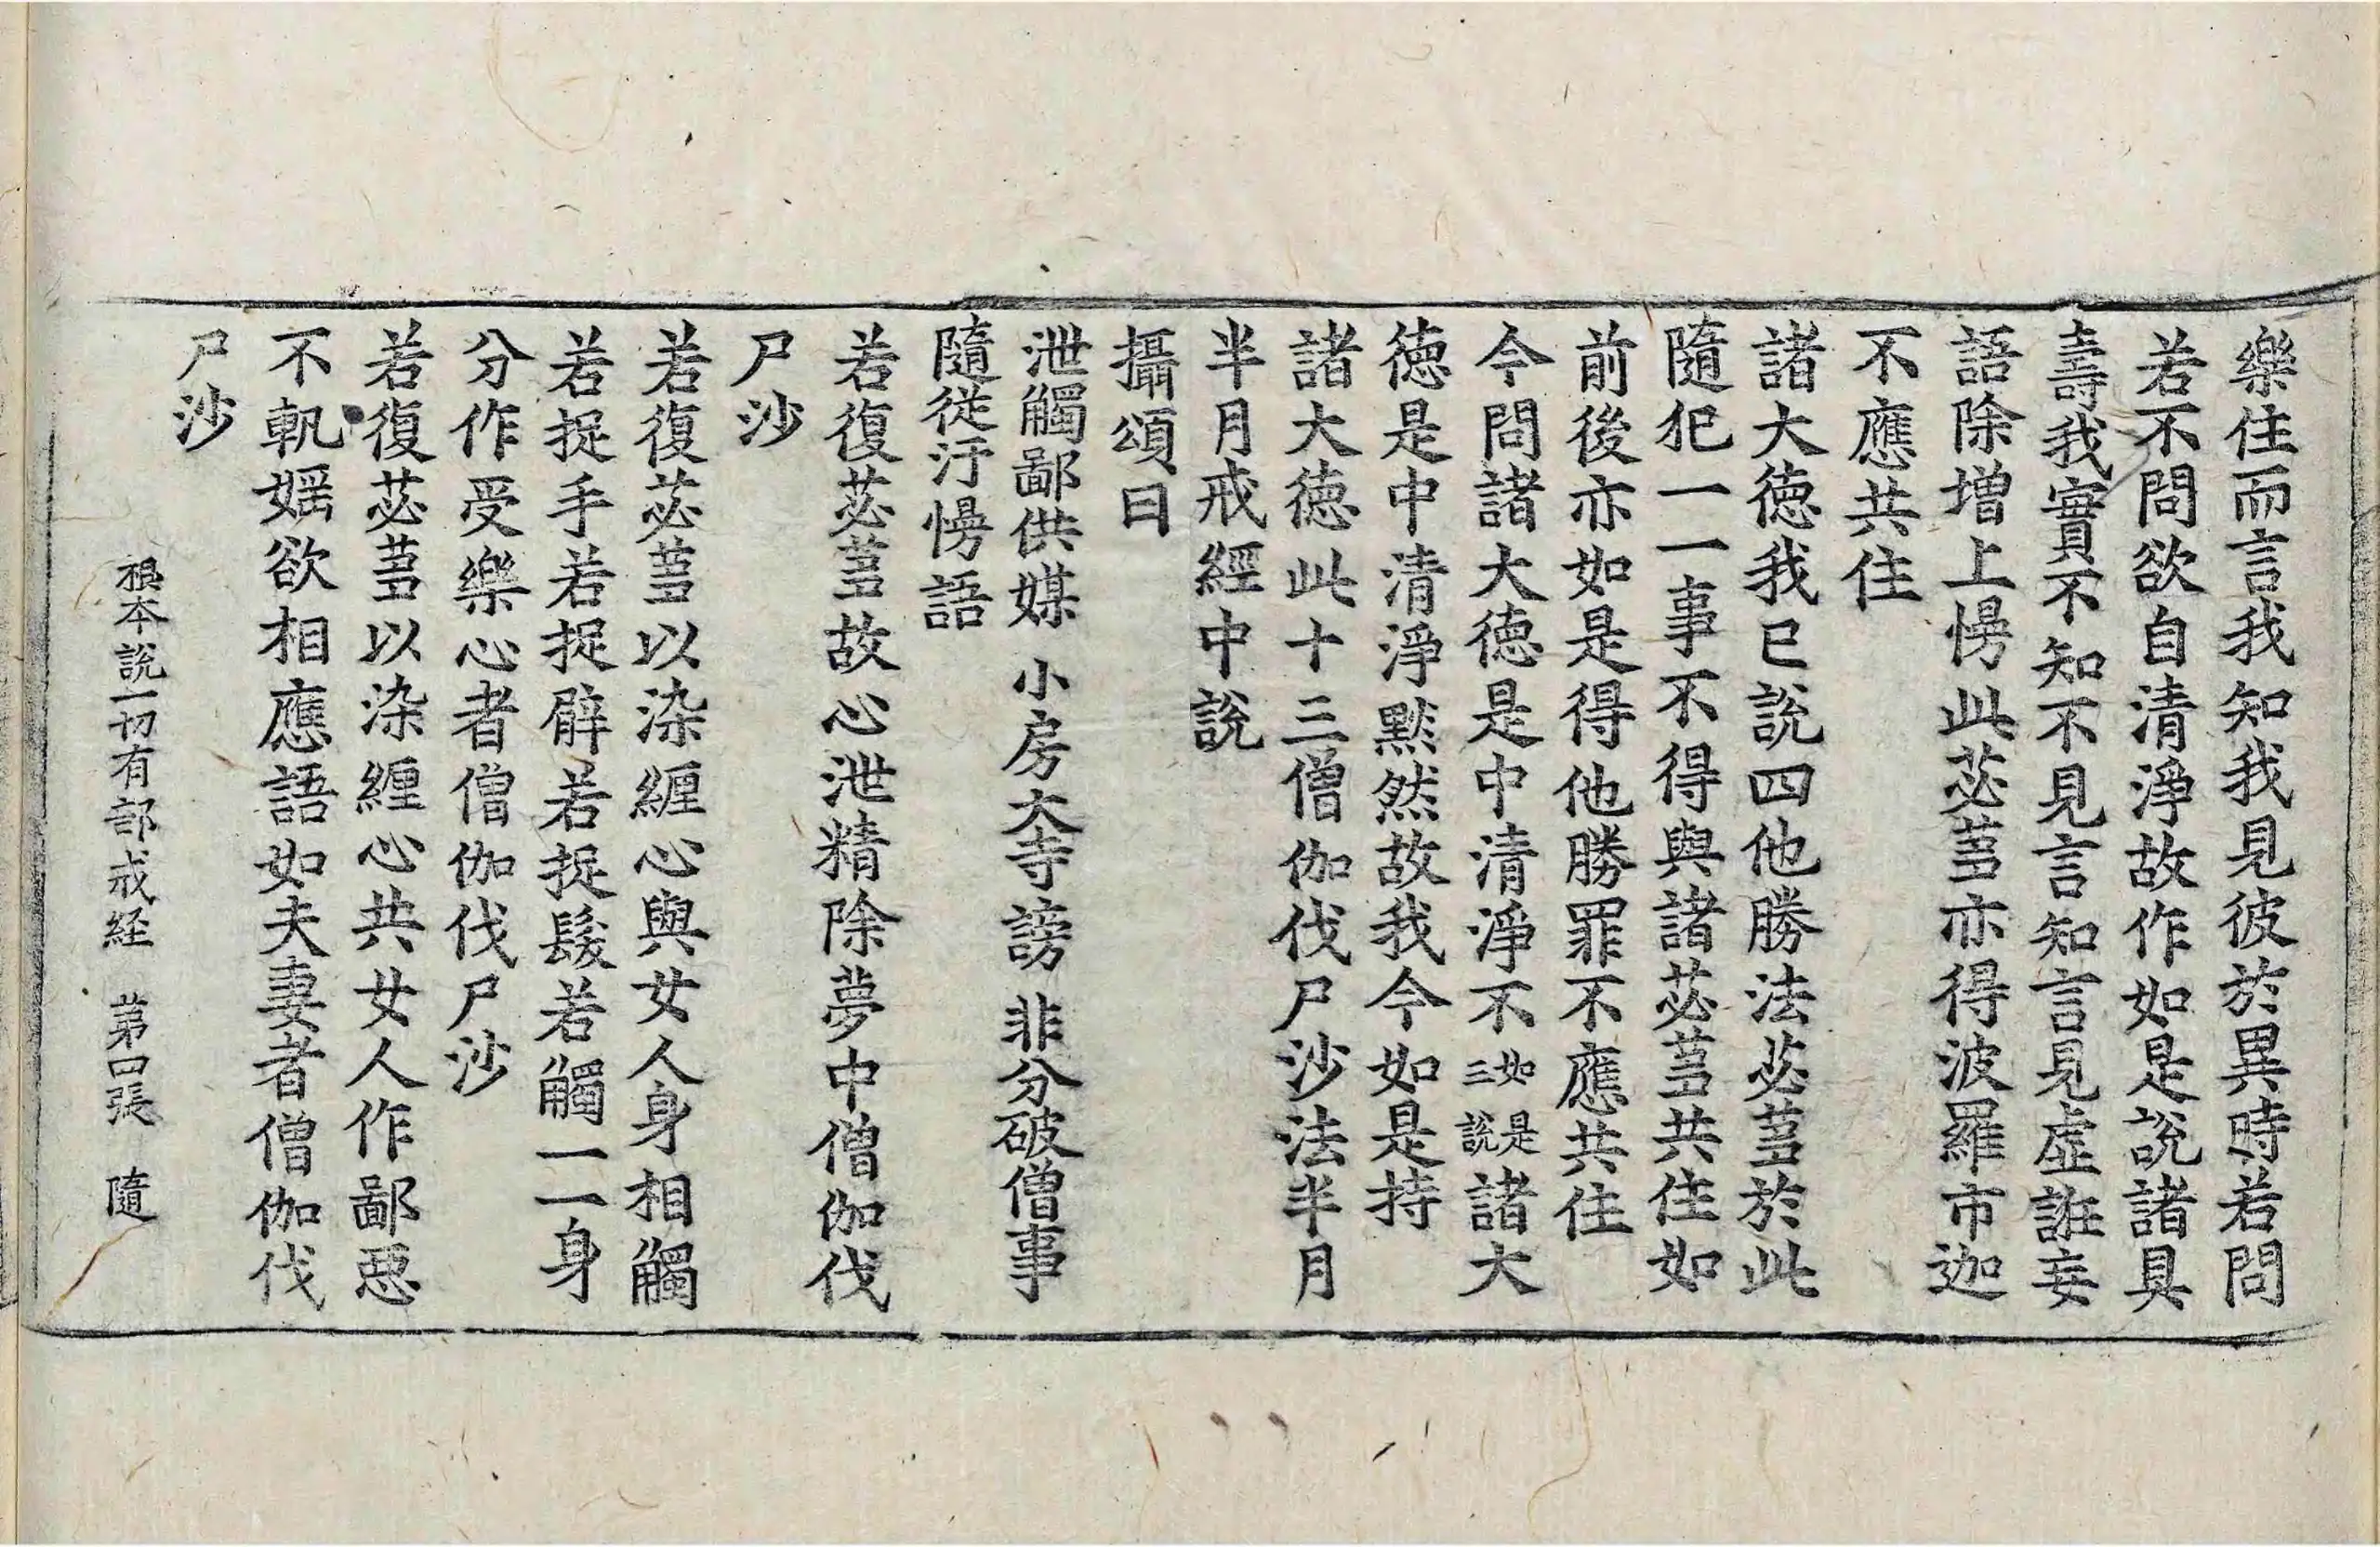 樂住而言我知我見彼於異時若問
若不問欲自清淨故作如是說諸具
壽我實不知不見言知言見虛誑妄
語除增上慢此苾蒭亦得波羅市迦
不應共住
諸大德我已說四他勝法苾蒭於此
隨犯一一事不得與諸苾蒭共住如
前後亦如是得他勝罪不應共住
今問諸大德是中清淨不如是三說諸大
德是中清淨默然故我今如是持
諸大德此十三僧伽伐尸沙法半月
半月戒經中說
攝頌曰
泄觸鄙供媒 小房大寺謗 非分破僧事
隨從汙慢語
若復苾蒭故心泄精除夢中僧伽伐
尸沙
若復苾蒭以染纏心與女人身相觸
若捉手若捉臂若捉髮若觸一一身
分作受樂心者僧伽伐尸沙
若復苾蒭以染纏心共女人作鄙惡
不軌婬欲相應語如夫妻者僧伽伐
尸沙
根本說一切有部戒経 第四張 隨